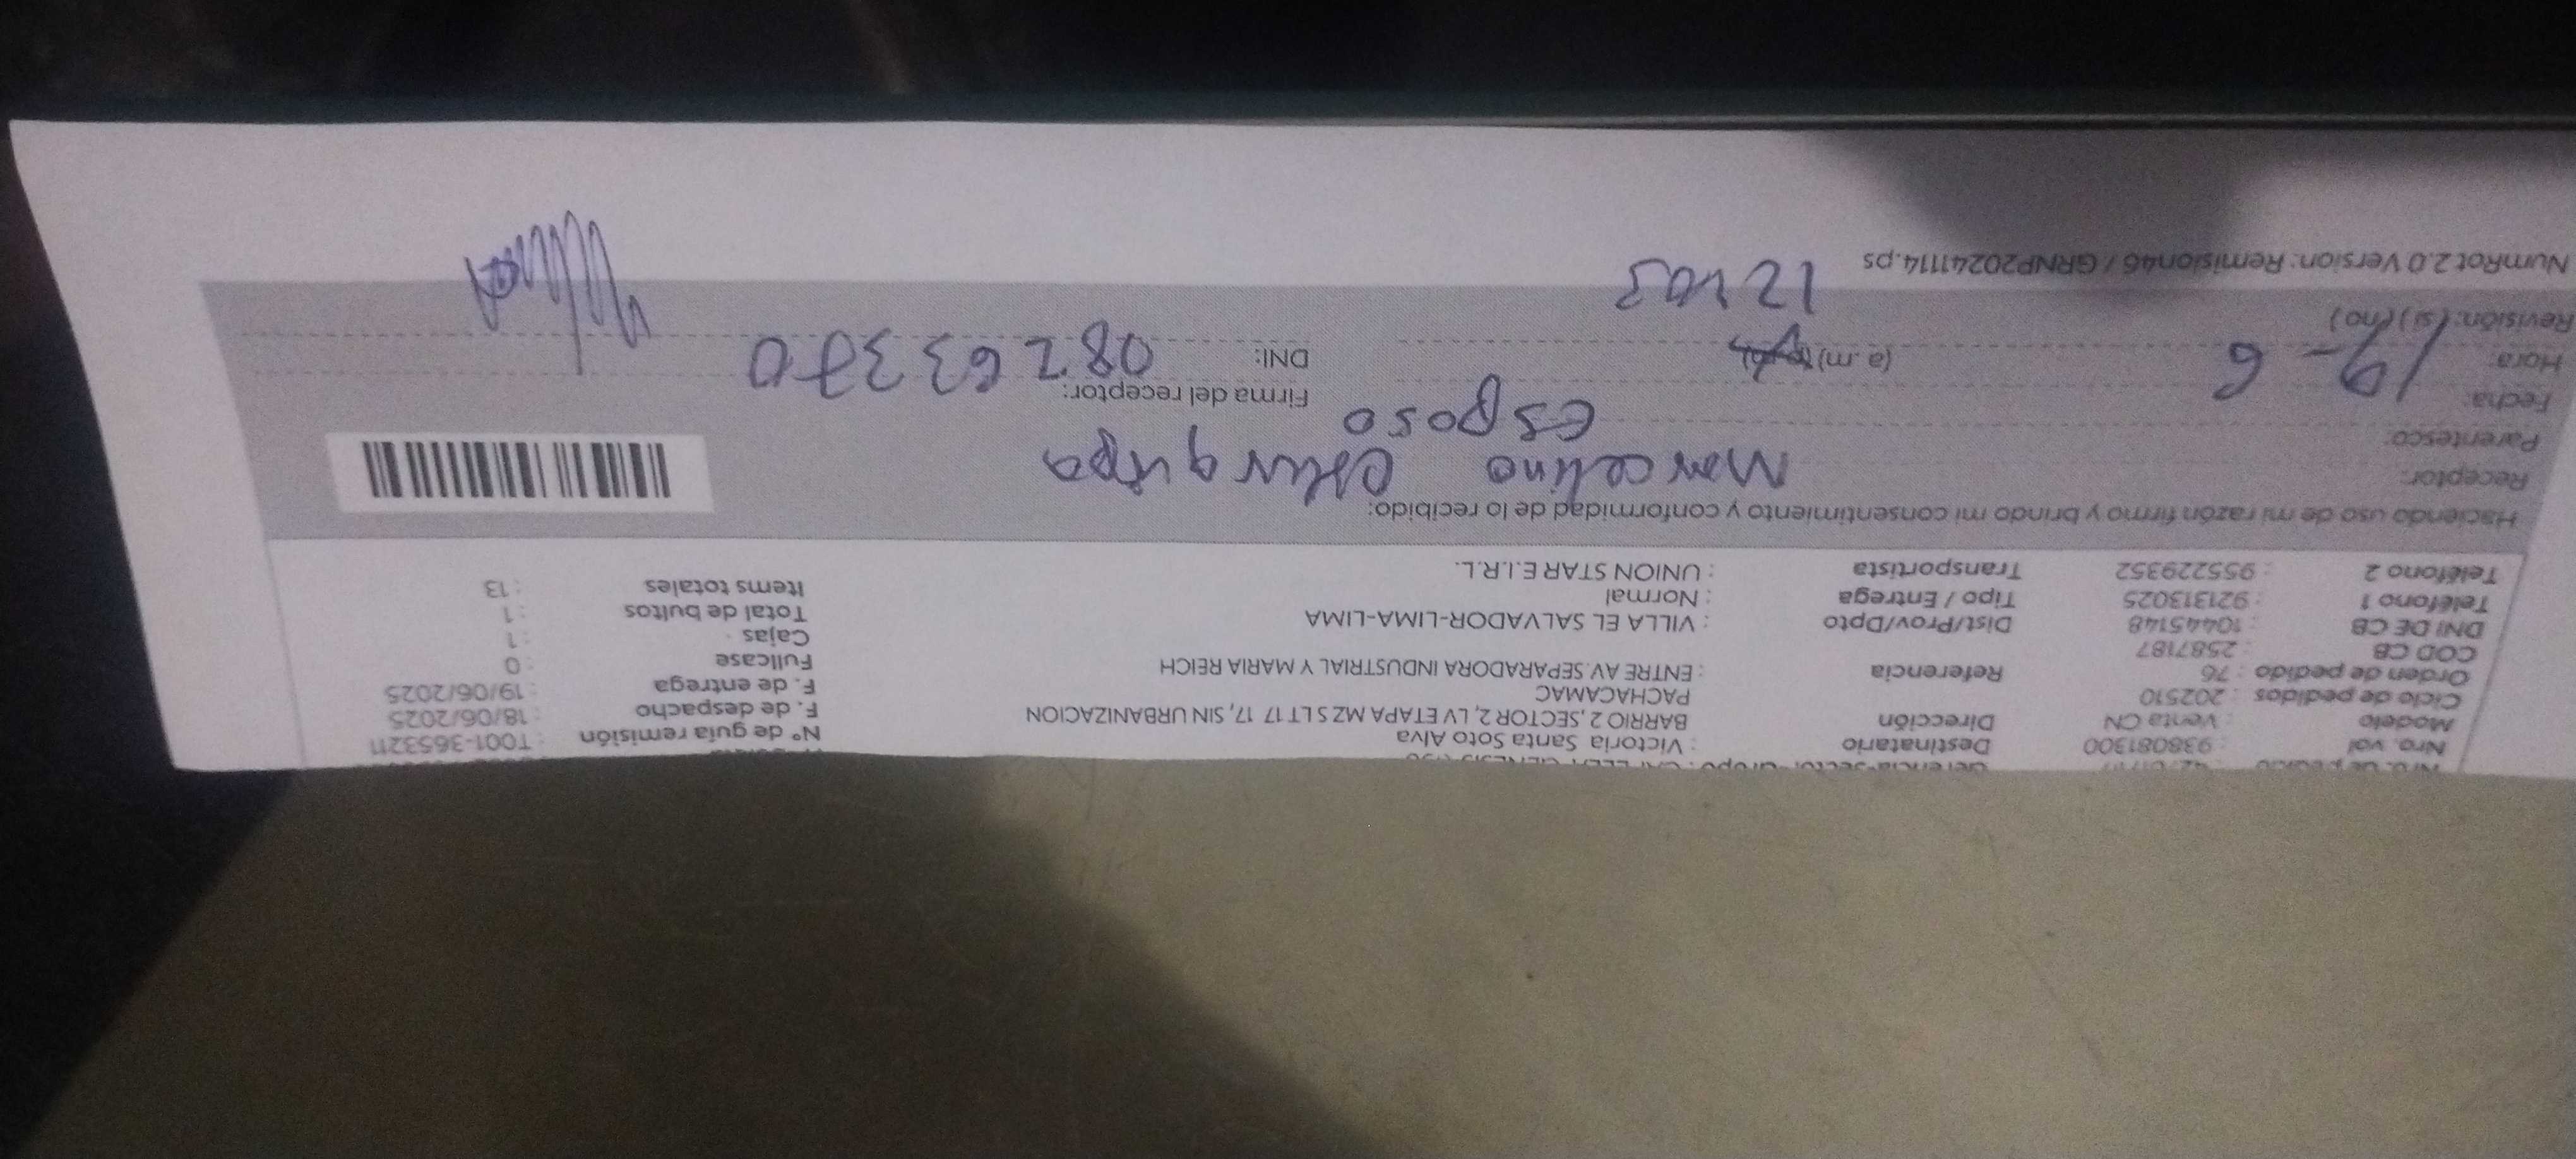 Nro. vol : 938081300 Destinatario : Victoria Santa Soto Alva N° de guía remisión : T001-3653211
Modelo : Venta CN Dirección BARRIO 2, SECTOR 2, LV ETAPA MZ S LT 17 17, SIN URBANIZACION F. de despacho : 18/06/2025
Ciclo de pedidos : 202510 PACHACAMAC F. de entrega : 19/06/2025
Orden de pedido : 76 Referencia : ENTRE AV. SEPARADORA INDUSTRIAL Y MARIA REICH Fullcase : 0
COD CB : 2587187 Cajas : 1
DNI DE CB : 10445148 Dist/Prov/Dpto : VILLA EL SALVADOR-LIMA-LIMA Total de bultos : 1
Teléfono 1 : 921313025 Tipo / Entrega : Normal Items totales : 13
Teléfono 2 : 955229352 Transportista : UNION STAR E.I.R.L.
Haciendo uso de mi razón firmo y brindo mi consentimiento y conformidad de lo recibido:
Receptor: Marcelino
Parentesco: esposo
Fecha: 19-6 Firma del receptor:
Hora: (a.m) DNI: 08263370
Revisión: (si) (no)
NumRot 2.0 Version: Remision46 / GRNP20241114.ps